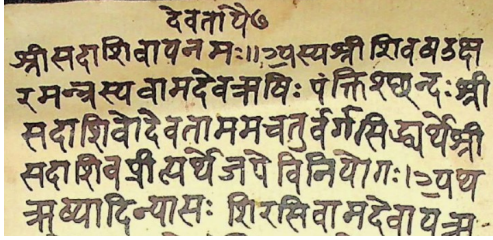 देवतायै७
श्रीसदाशिवायनमः॥अस्यश्रीशिवषडक्ष
रमन्त्रस्यवामदेवऋषिः पंक्तिश्छन्दः श्री
सदाशिवोदेवताममचतुर्वर्गसिद्ध्यर्थेश्री
सदाशिवप्रीत्यर्थेजपेविनियोगः।अथ
ऋष्यादिन्यासः शिरसिवामदेवायऋ